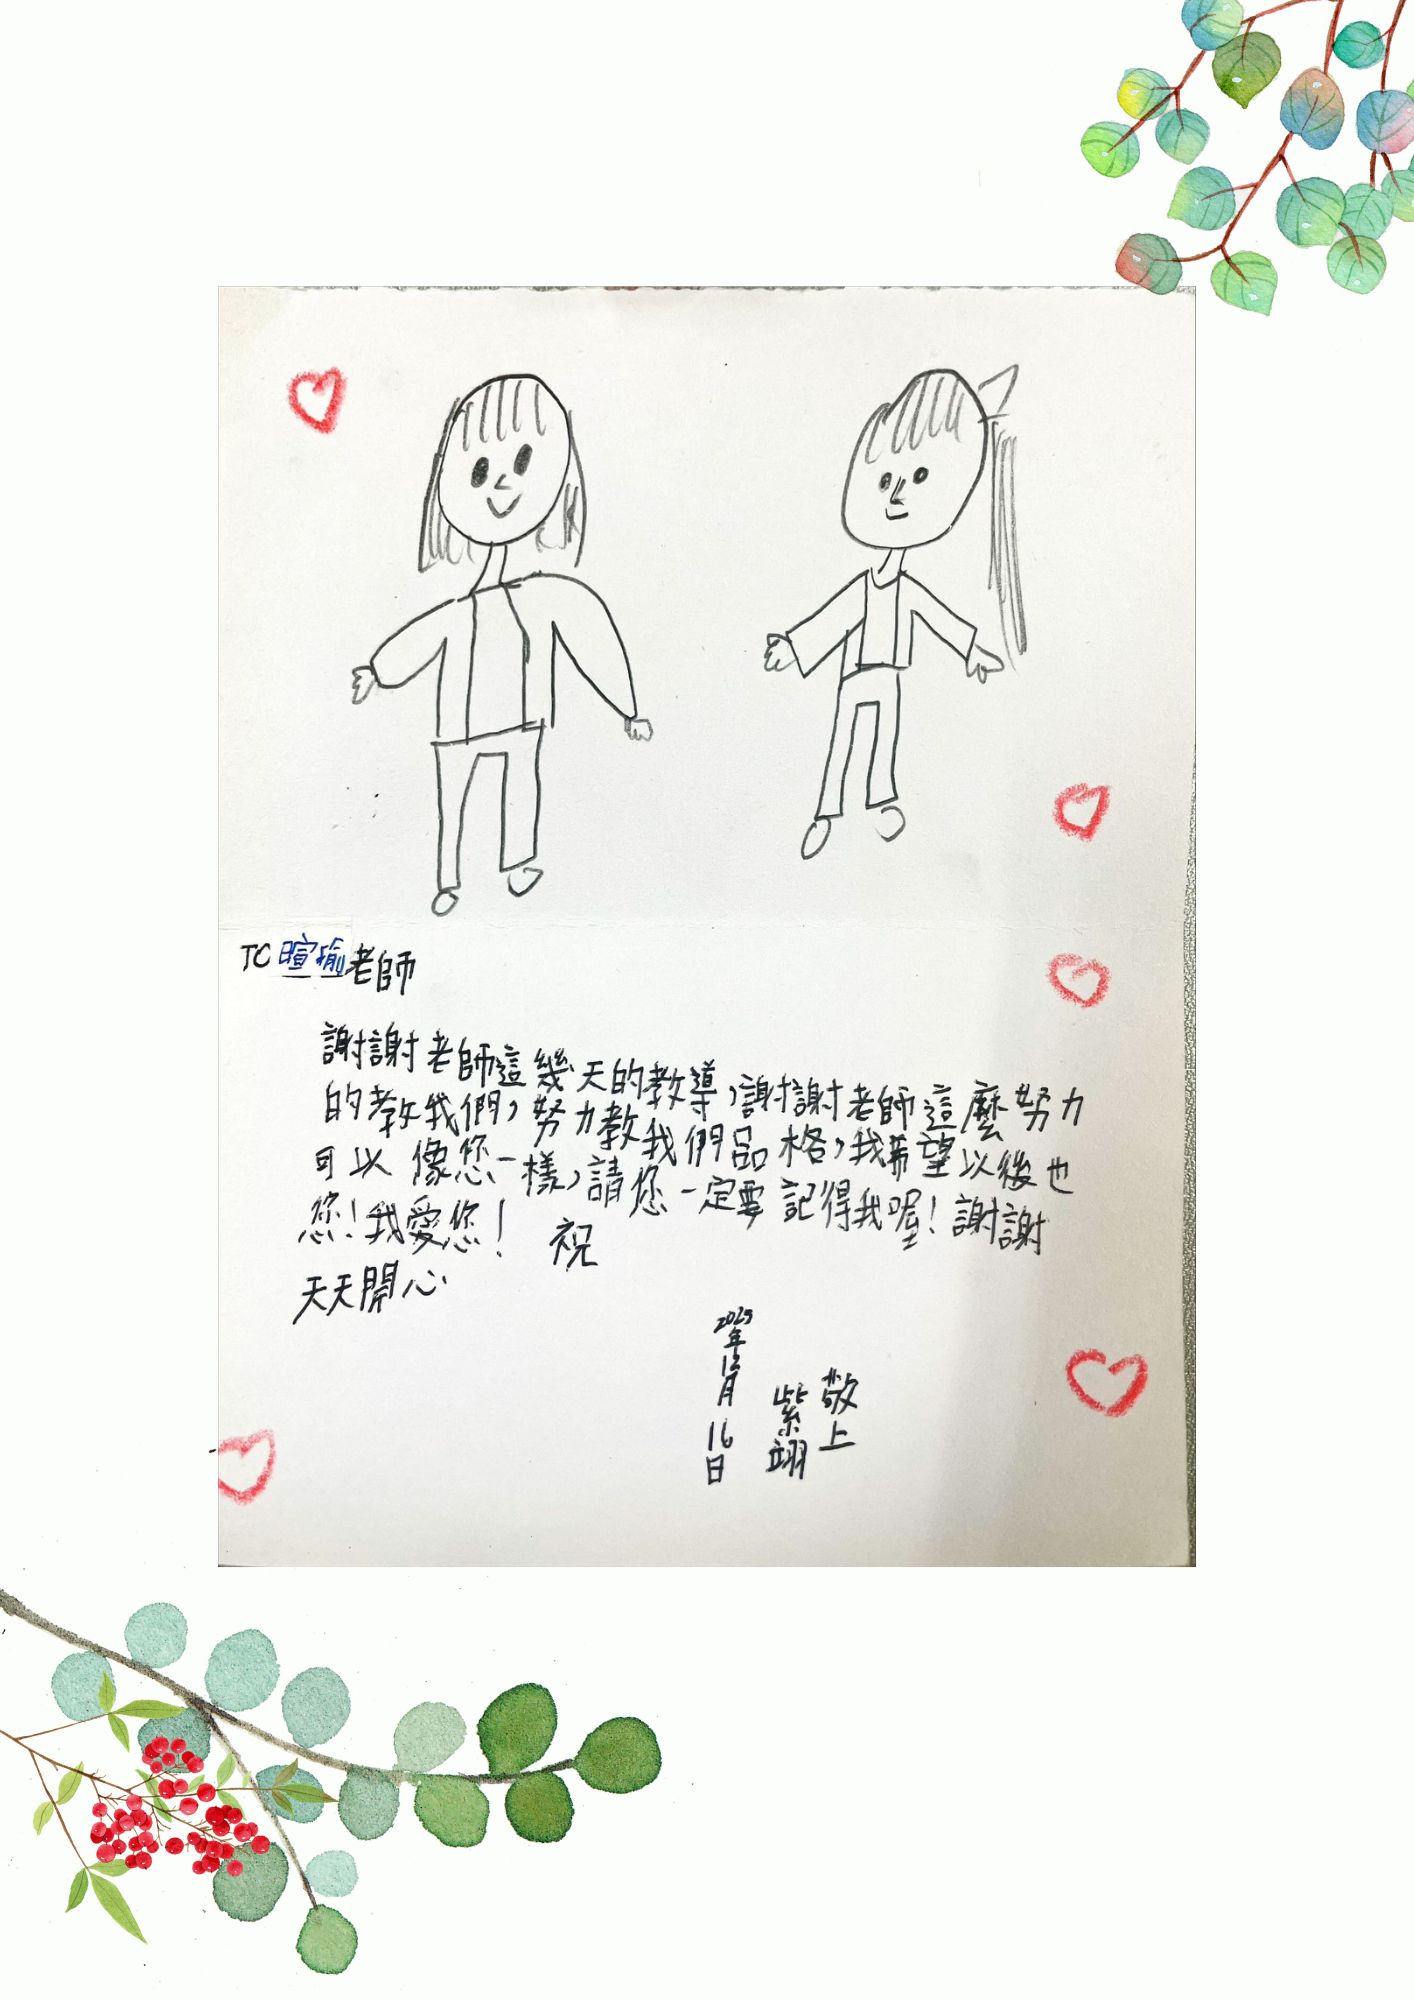 TO 暄瑜老師
謝謝老師這幾天的教導，謝謝老師這麼努力
的教我們，努力教我們品格，我希望以後也
可以像您一樣，請您一定要記得我喔！謝謝
您！我愛您！ 祝
天天開心
敬上
紫翊
2025年12月16日